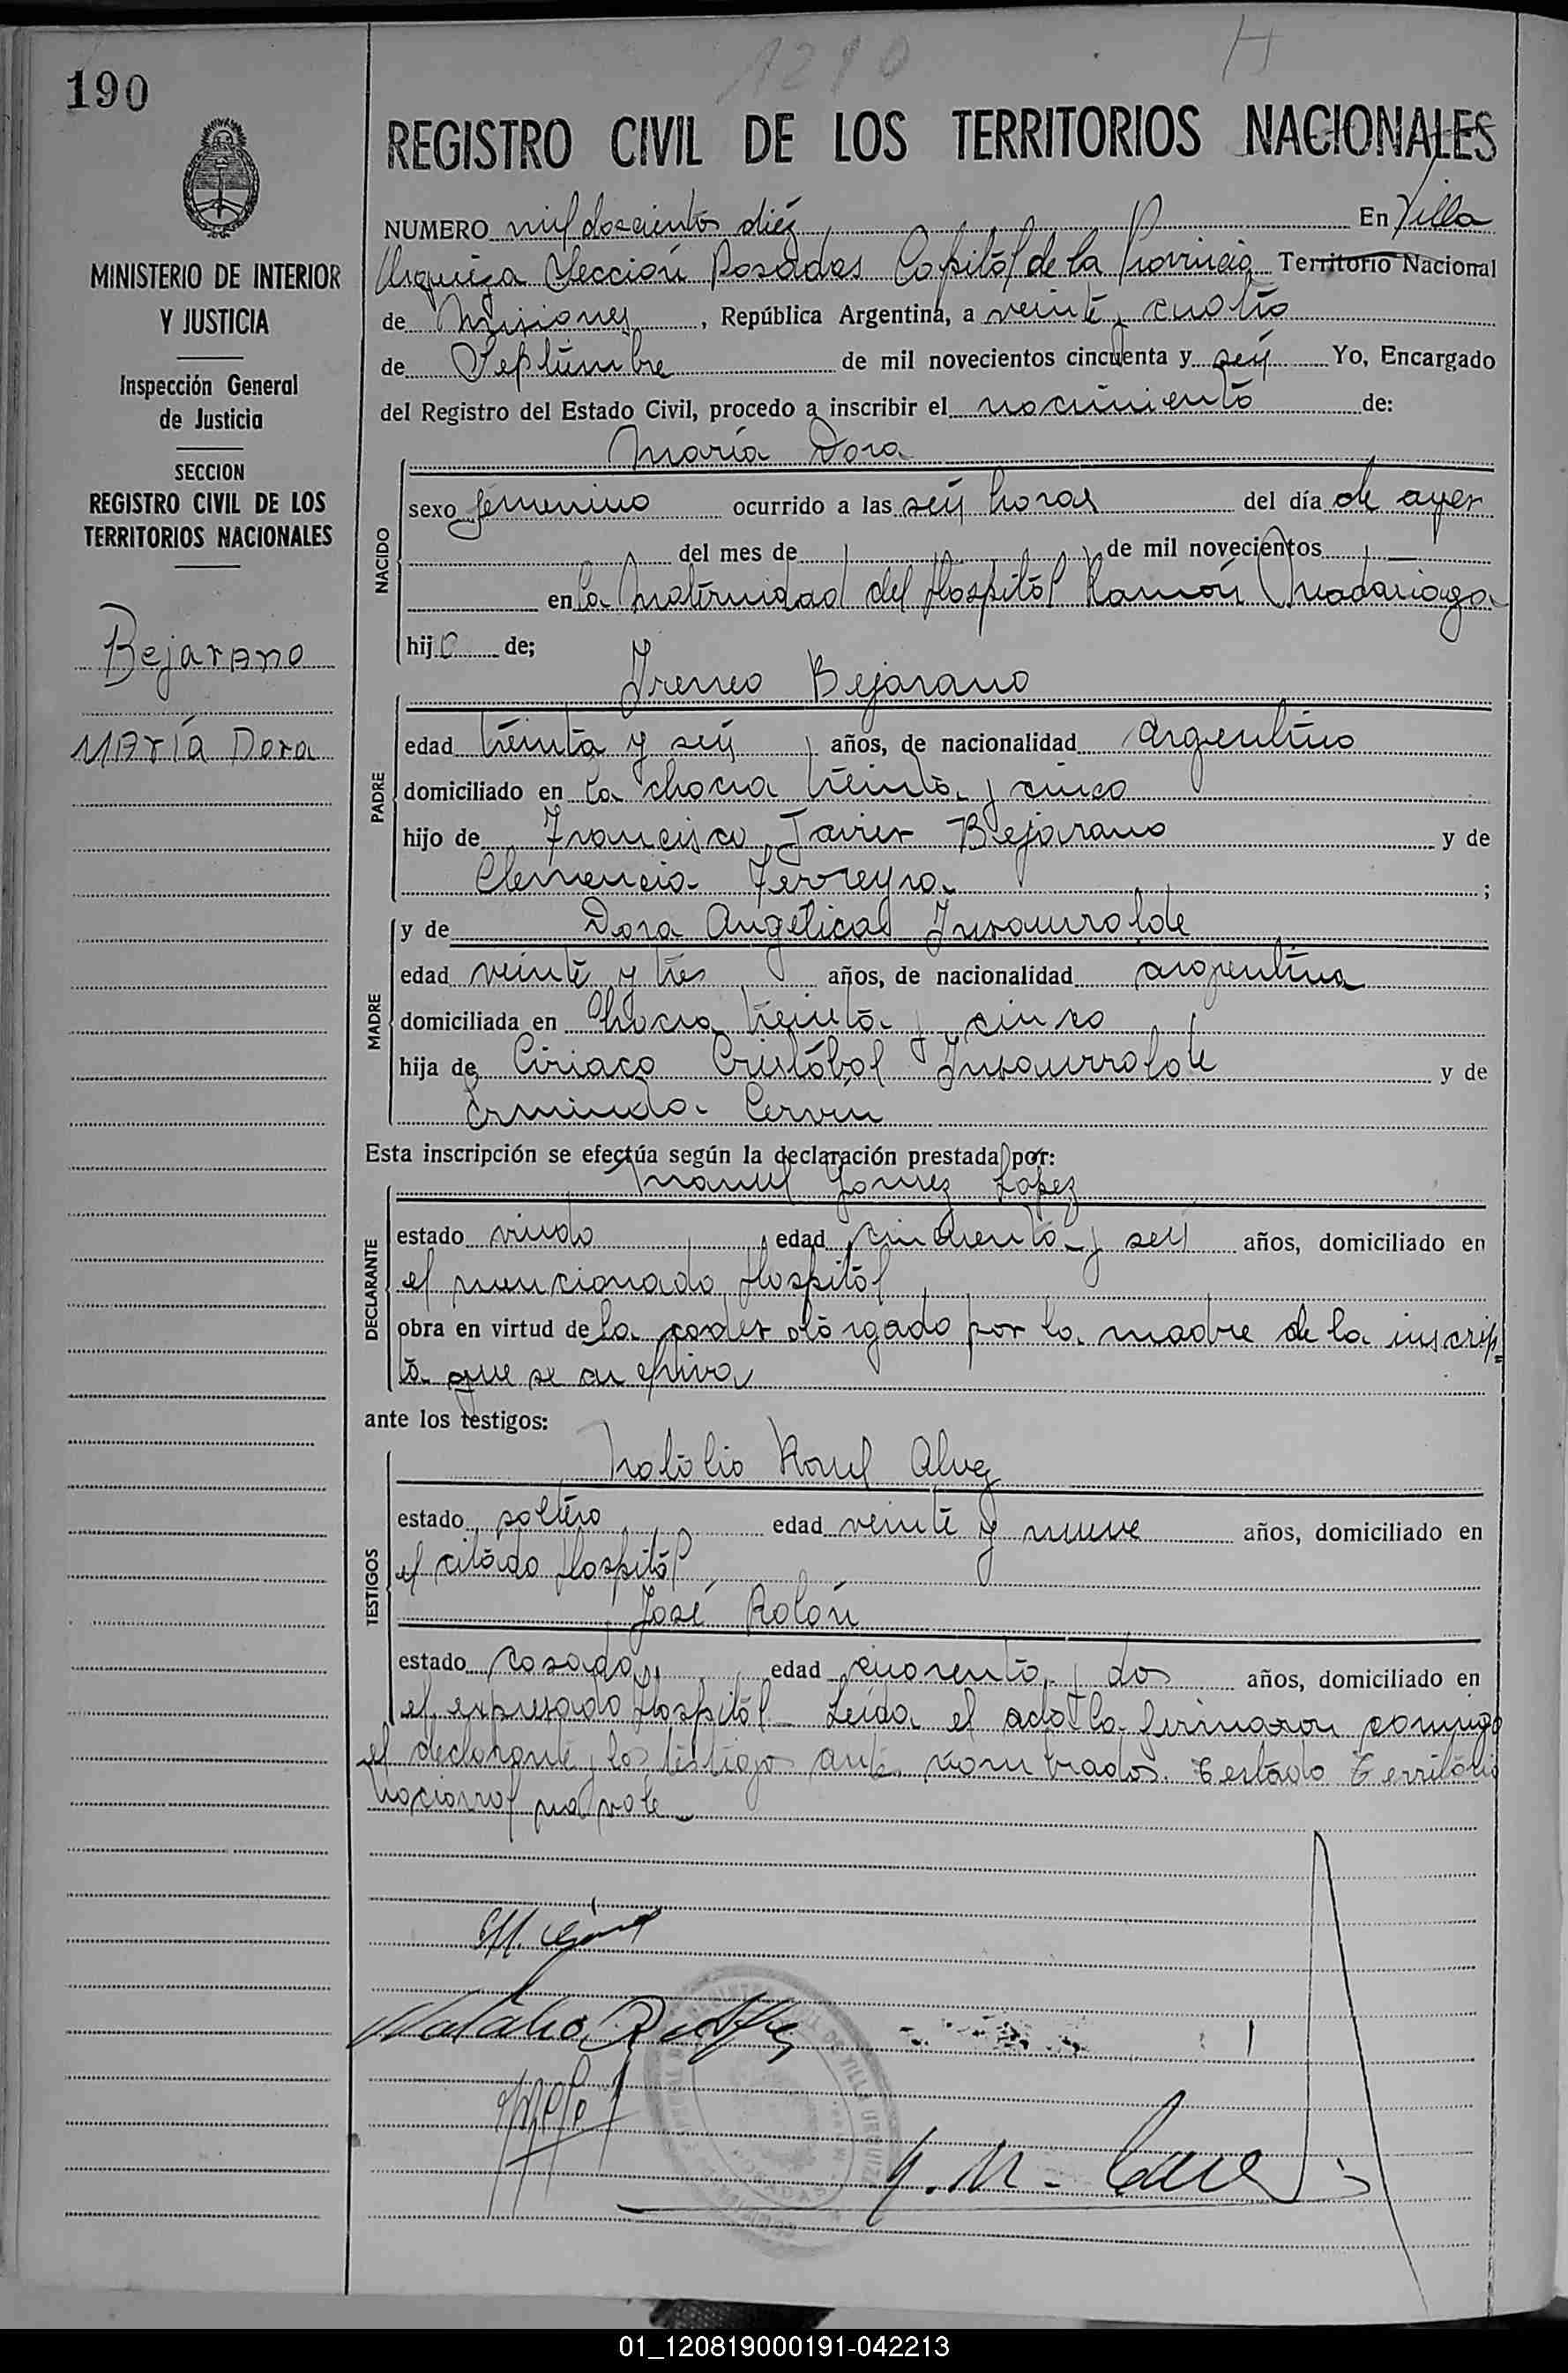 1210
H
190
MINISTERIO DE INTERIOR
Y JUSTICIA
Inspección General
de Justicia
SECCION
REGISTRO CIVIL DE LOS
TERRITORIOS NACIONALES
Bejarano
María Dora
REGISTRO CIVIL DE LOS TERRITORIOS NACIONALES
NUMERO mil doscientos diéz En Villa
Urquiza Sección Posadas Capital de la Provincia Territorio Nacional
de Misiones, República Argentina, a veinte y cuatro
de Septiembre de mil novecientos cincuenta y seis Yo, Encargado
del Registro del Estado Civil, procedo a inscribir el nacimiento de:
María Dora
NACIDO
sexo femenino ocurrido a las seis horas del día de ayer
del mes de de mil novecientos
en la Maternidad del Hospital Ramón Madariaga
hija de;
Ireneo Bejarano
PADRE
edad treinta y seis años, de nacionalidad argentino
domiciliado en la chacra treinta y cinco
hijo de Francisco Javier Bejarano y de
Clemencia Ferreyra ;
y de Dora Angélica Insaurralde
MADRE
edad veinte y tres años, de nacionalidad argentina
domiciliada en Chacra treinta y cinco
hija de Ciriaco Cristóbal Insaurralde y de
Erminda Cervin
Esta inscripción se efectúa según la declaración prestada por:
Manuel Gomez Lopez
DECLARANTE
estado viudo edad cincuenta y seis años, domiciliado en
el mencionado Hospital
obra en virtud de la poder otorgado por la madre de la inscrip=
ta que se archiva
ante los testigos:
Natalio Raul Alvez
TESTIGOS
estado soltero edad veinte y nueve años, domiciliado en
el citado Hospital
José Rolón
estado casado, edad cuarenta y dos años, domiciliado en
el expresado Hospital - Leida el acta la firmaron conmigo
el declarante y los testigos ante nombrados. Testado Territorio
Nacional no vale
01_120819000191-042213